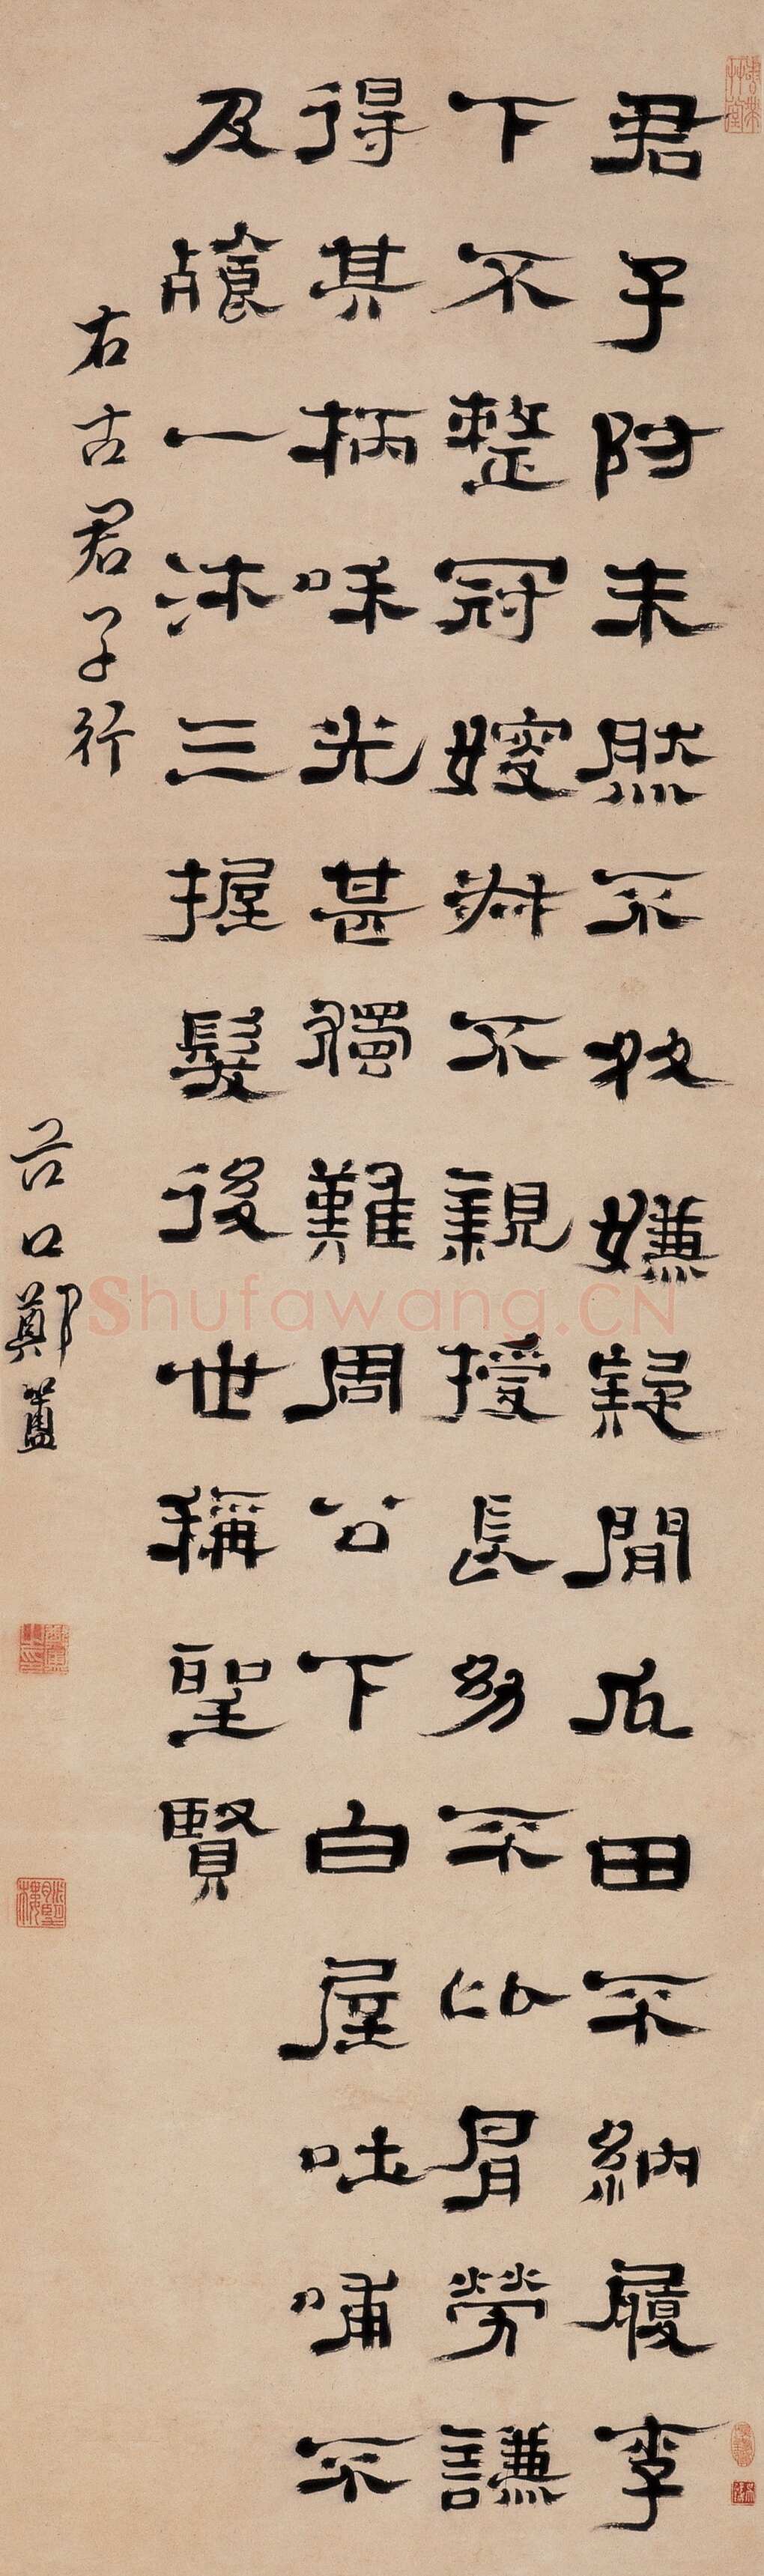 君子防未然不处嫌疑間瓜田不納履李
下不整冠嫂叔不親授長幼不比肩勞謙
得其柄咊光甚獨難周公下白屋吐哺不
及餐一沐三握髮後世稱聖賢
右古君子行
谷口鄭簠
Shufawang.CN